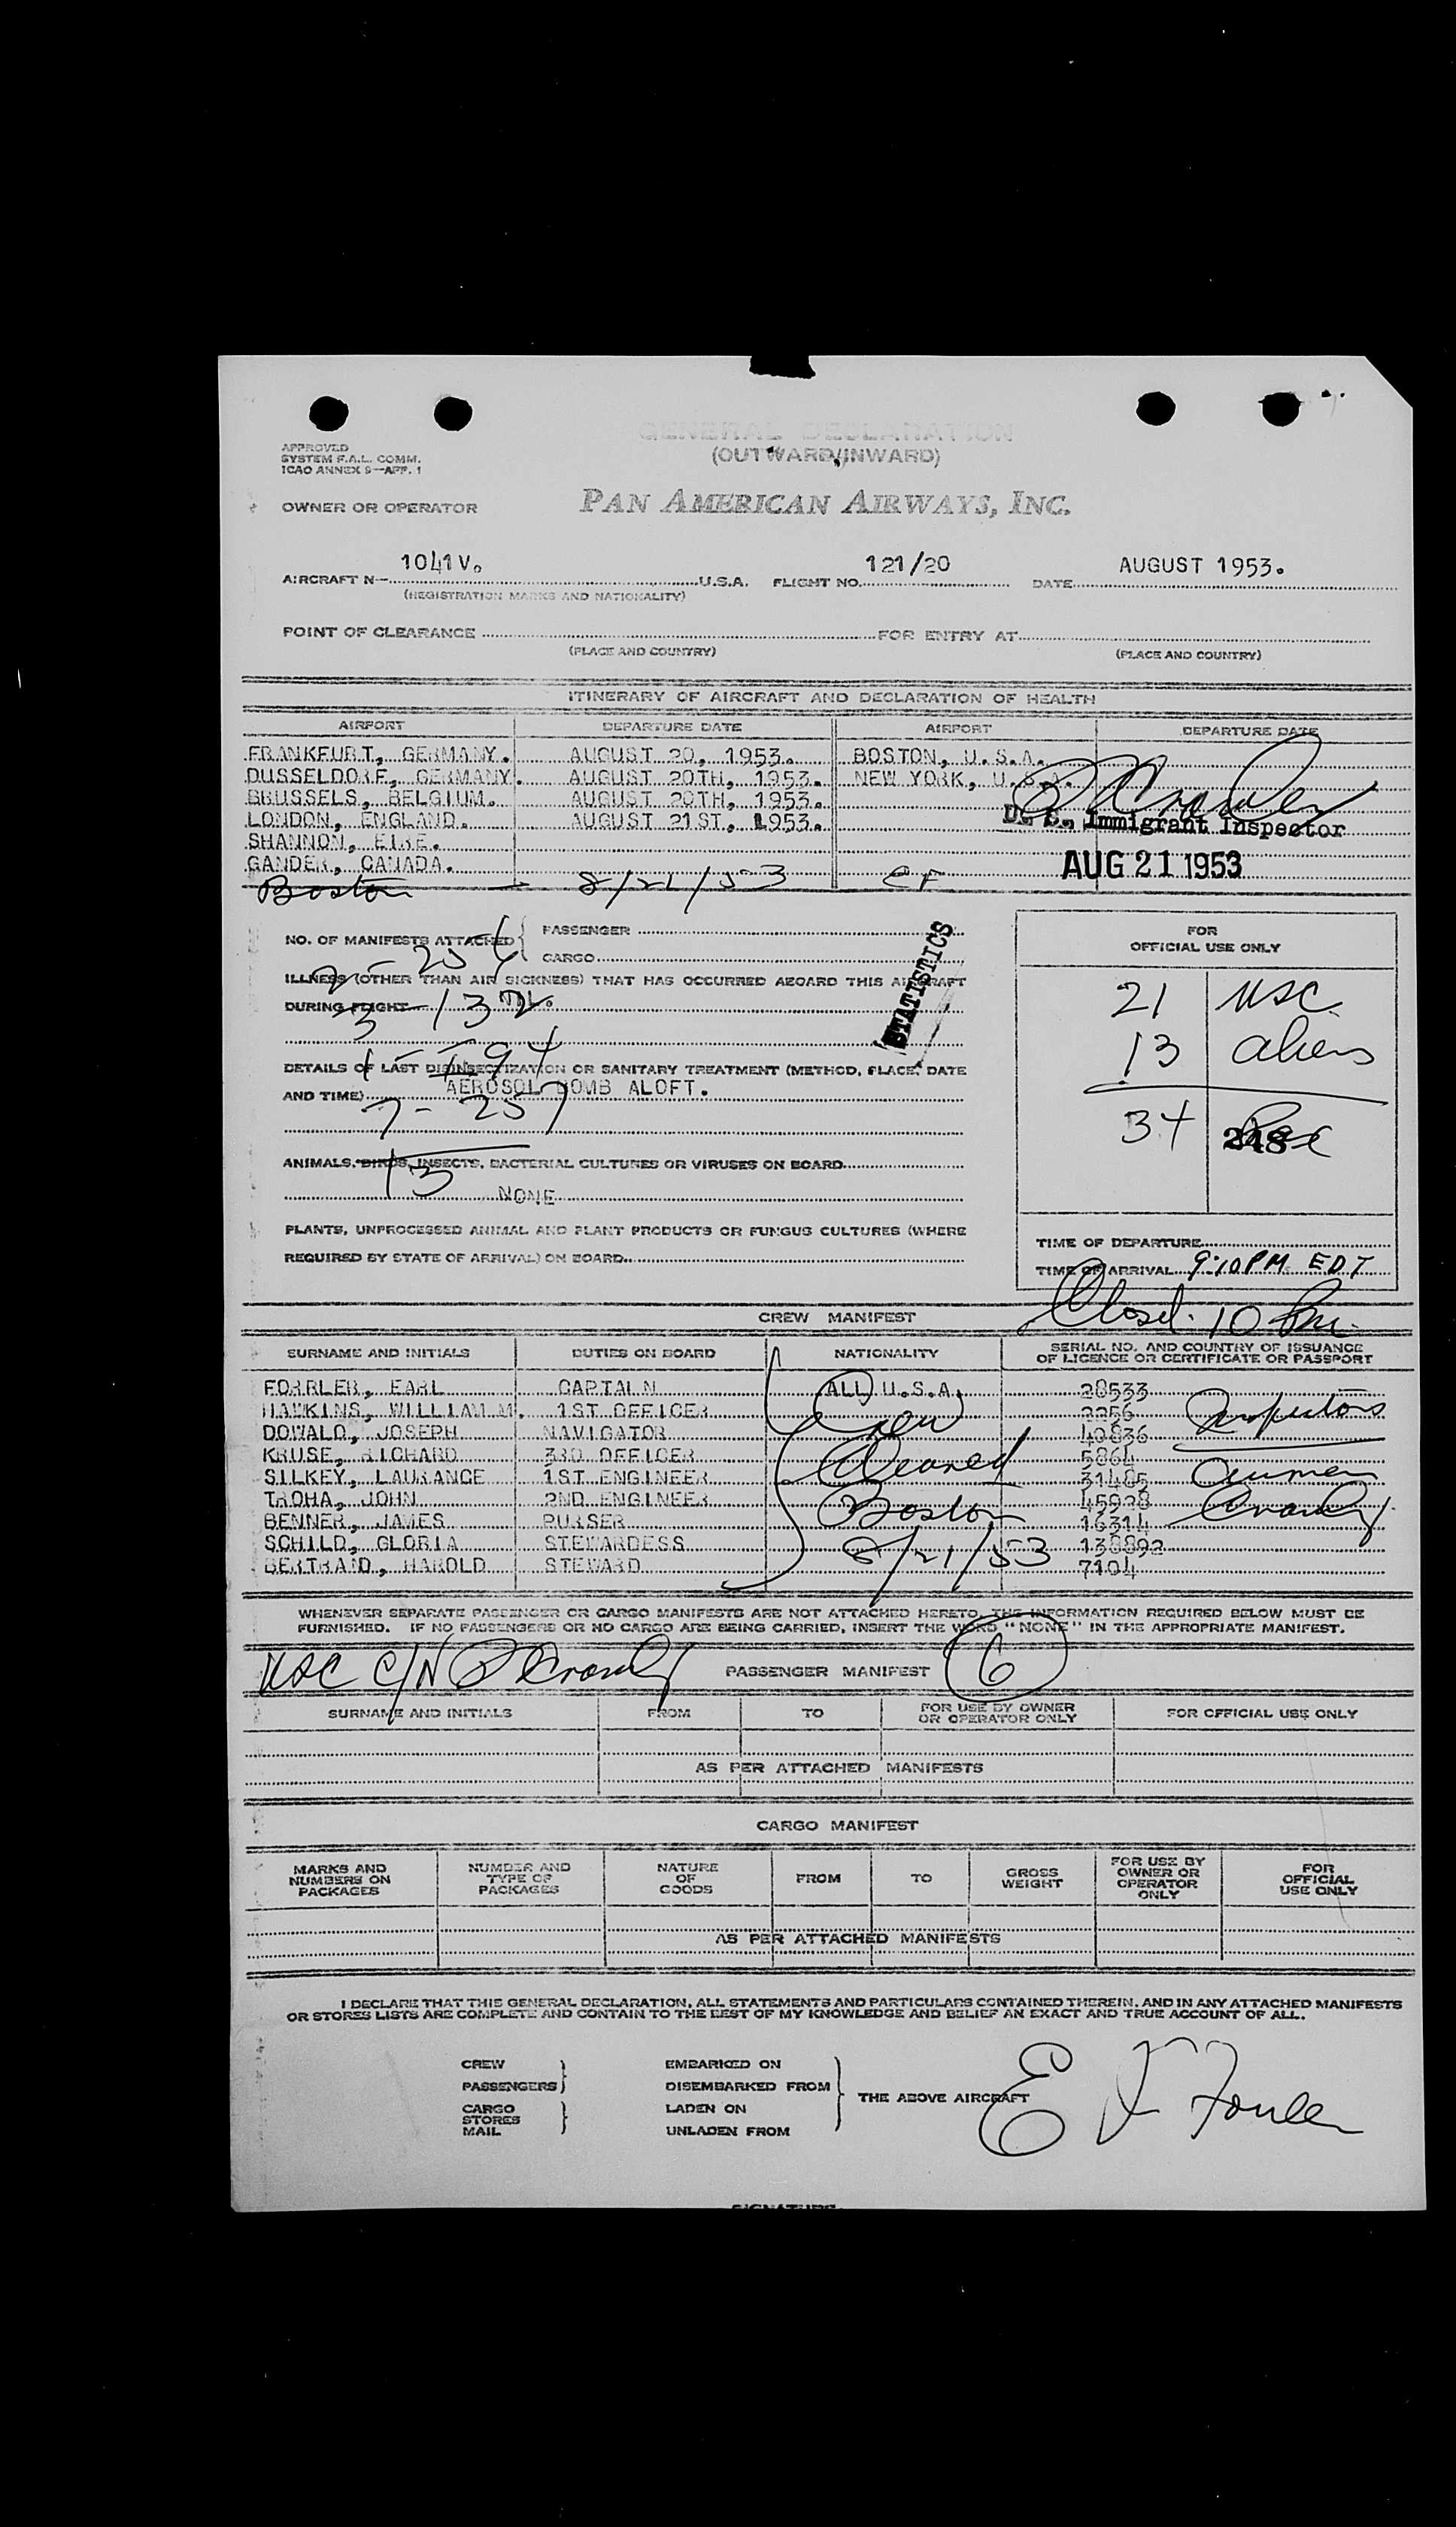 GENERAL DECLARATION
(OUTWARD/INWARD)
APPROVED
SYSTEM F.A.L. COMM.
ICAO ANNEX 9—APP. 1
OWNER OR OPERATOR PAN AMERICAN AIRWAYS, INC.
AIRCRAFT N- 1041V. U.S.A. FLIGHT NO. 121/20 DATE AUGUST 1953.
(REGISTRATION MARKS AND NATIONALITY)
POINT OF CLEARANCE FOR ENTRY AT
(PLACE AND COUNTRY) (PLACE AND COUNTRY)
ITINERARY OF AIRCRAFT AND DECLARATION OF HEALTH
AIRPORT DEPARTURE DATE AIRPORT DEPARTURE DATE
FRANKFURT, GERMANY. AUGUST 20, 1953. BOSTON, U.S.A.
DUSSELDORF, GERMANY. AUGUST 20TH, 1953. NEW YORK, U.S.A.
BRUSSELS, BELGIUM. AUGUST 20TH, 1953.
LONDON, ENGLAND. AUGUST 21ST, 1953. U. S. Immigrant Inspector
SHANNON, EIRE.
GANDER, CANADA. AUG 21 1953
Boston - 8/21/53 CF
NO. OF MANIFESTS ATTACHED { PASSENGER
CARGO
ILLNESS (OTHER THAN AIR SICKNESS) THAT HAS OCCURRED ABOARD THIS AIRCRAFT
DURING FLIGHT
STATISTICS
DETAILS OF LAST DISINSECTIZATION OR SANITARY TREATMENT (METHOD, PLACE, DATE
AND TIME) AEROSOL BOMB ALOFT.
7- 257
13
ANIMALS, BIRDS, INSECTS, BACTERIAL CULTURES OR VIRUSES ON BOARD
NONE
PLANTS, UNPROCESSED ANIMAL AND PLANT PRODUCTS OR FUNGUS CULTURES (WHERE
REQUIRED BY STATE OF ARRIVAL) ON BOARD
FOR
OFFICIAL USE ONLY
21 USC
13 aliens
34 248
TIME OF DEPARTURE
TIME OF ARRIVAL 9:10 PM EDT
Closed. 10 Pm.
CREW MANIFEST
SURNAME AND INITIALS DUTIES ON BOARD NATIONALITY SERIAL NO. AND COUNTRY OF ISSUANCE
OF LICENCE OR CERTIFICATE OR PASSPORT
FORRLER, EARL CAPTAIN ALL U.S.A. 28533
HAWKINS, WILLIAM M. 1ST OFFICER 2256 Inspectors
DOWALO, JOSEPH NAVIGATOR Crew 40836
KRUSE, RICHARD 3RD OFFICER 5864
SILKEY, LAURANCE 1ST ENGINEER Cleared 31485
TROHA, JOHN 2ND ENGINEER 45928
BENNER, JAMES PURSER Boston 16314
SCHILD, GLORIA STEWARDESS 138892
BERTRAND, HAROLD STEWARD 8/21/53 7104
WHENEVER SEPARATE PASSENGER OR CARGO MANIFESTS ARE NOT ATTACHED HERETO, THE INFORMATION REQUIRED BELOW MUST BE
FURNISHED. IF NO PASSENGERS OR NO CARGO ARE BEING CARRIED, INSERT THE WORD "NONE" IN THE APPROPRIATE MANIFEST.
USC C/N PASSENGER MANIFEST 6
SURNAME AND INITIALS FROM TO FOR USE BY OWNER
OR OPERATOR ONLY FOR OFFICIAL USE ONLY
AS PER ATTACHED MANIFESTS
CARGO MANIFEST
MARKS AND
NUMBERS ON
PACKAGES NUMBER AND
TYPE OF
PACKAGES NATURE
OF
GOODS FROM TO GROSS
WEIGHT FOR USE BY
OWNER OR
OPERATOR
ONLY FOR
OFFICIAL
USE ONLY
AS PER ATTACHED MANIFESTS
I DECLARE THAT THIS GENERAL DECLARATION, ALL STATEMENTS AND PARTICULARS CONTAINED THEREIN, AND IN ANY ATTACHED MANIFESTS
OR STORES LISTS ARE COMPLETE AND CONTAIN TO THE BEST OF MY KNOWLEDGE AND BELIEF AN EXACT AND TRUE ACCOUNT OF ALL.
CREW EMBARKED ON
PASSENGERS DISEMBARKED FROM THE ABOVE AIRCRAFT
CARGO LADEN ON
STORES
MAIL UNLADEN FROM
SIGNATURE